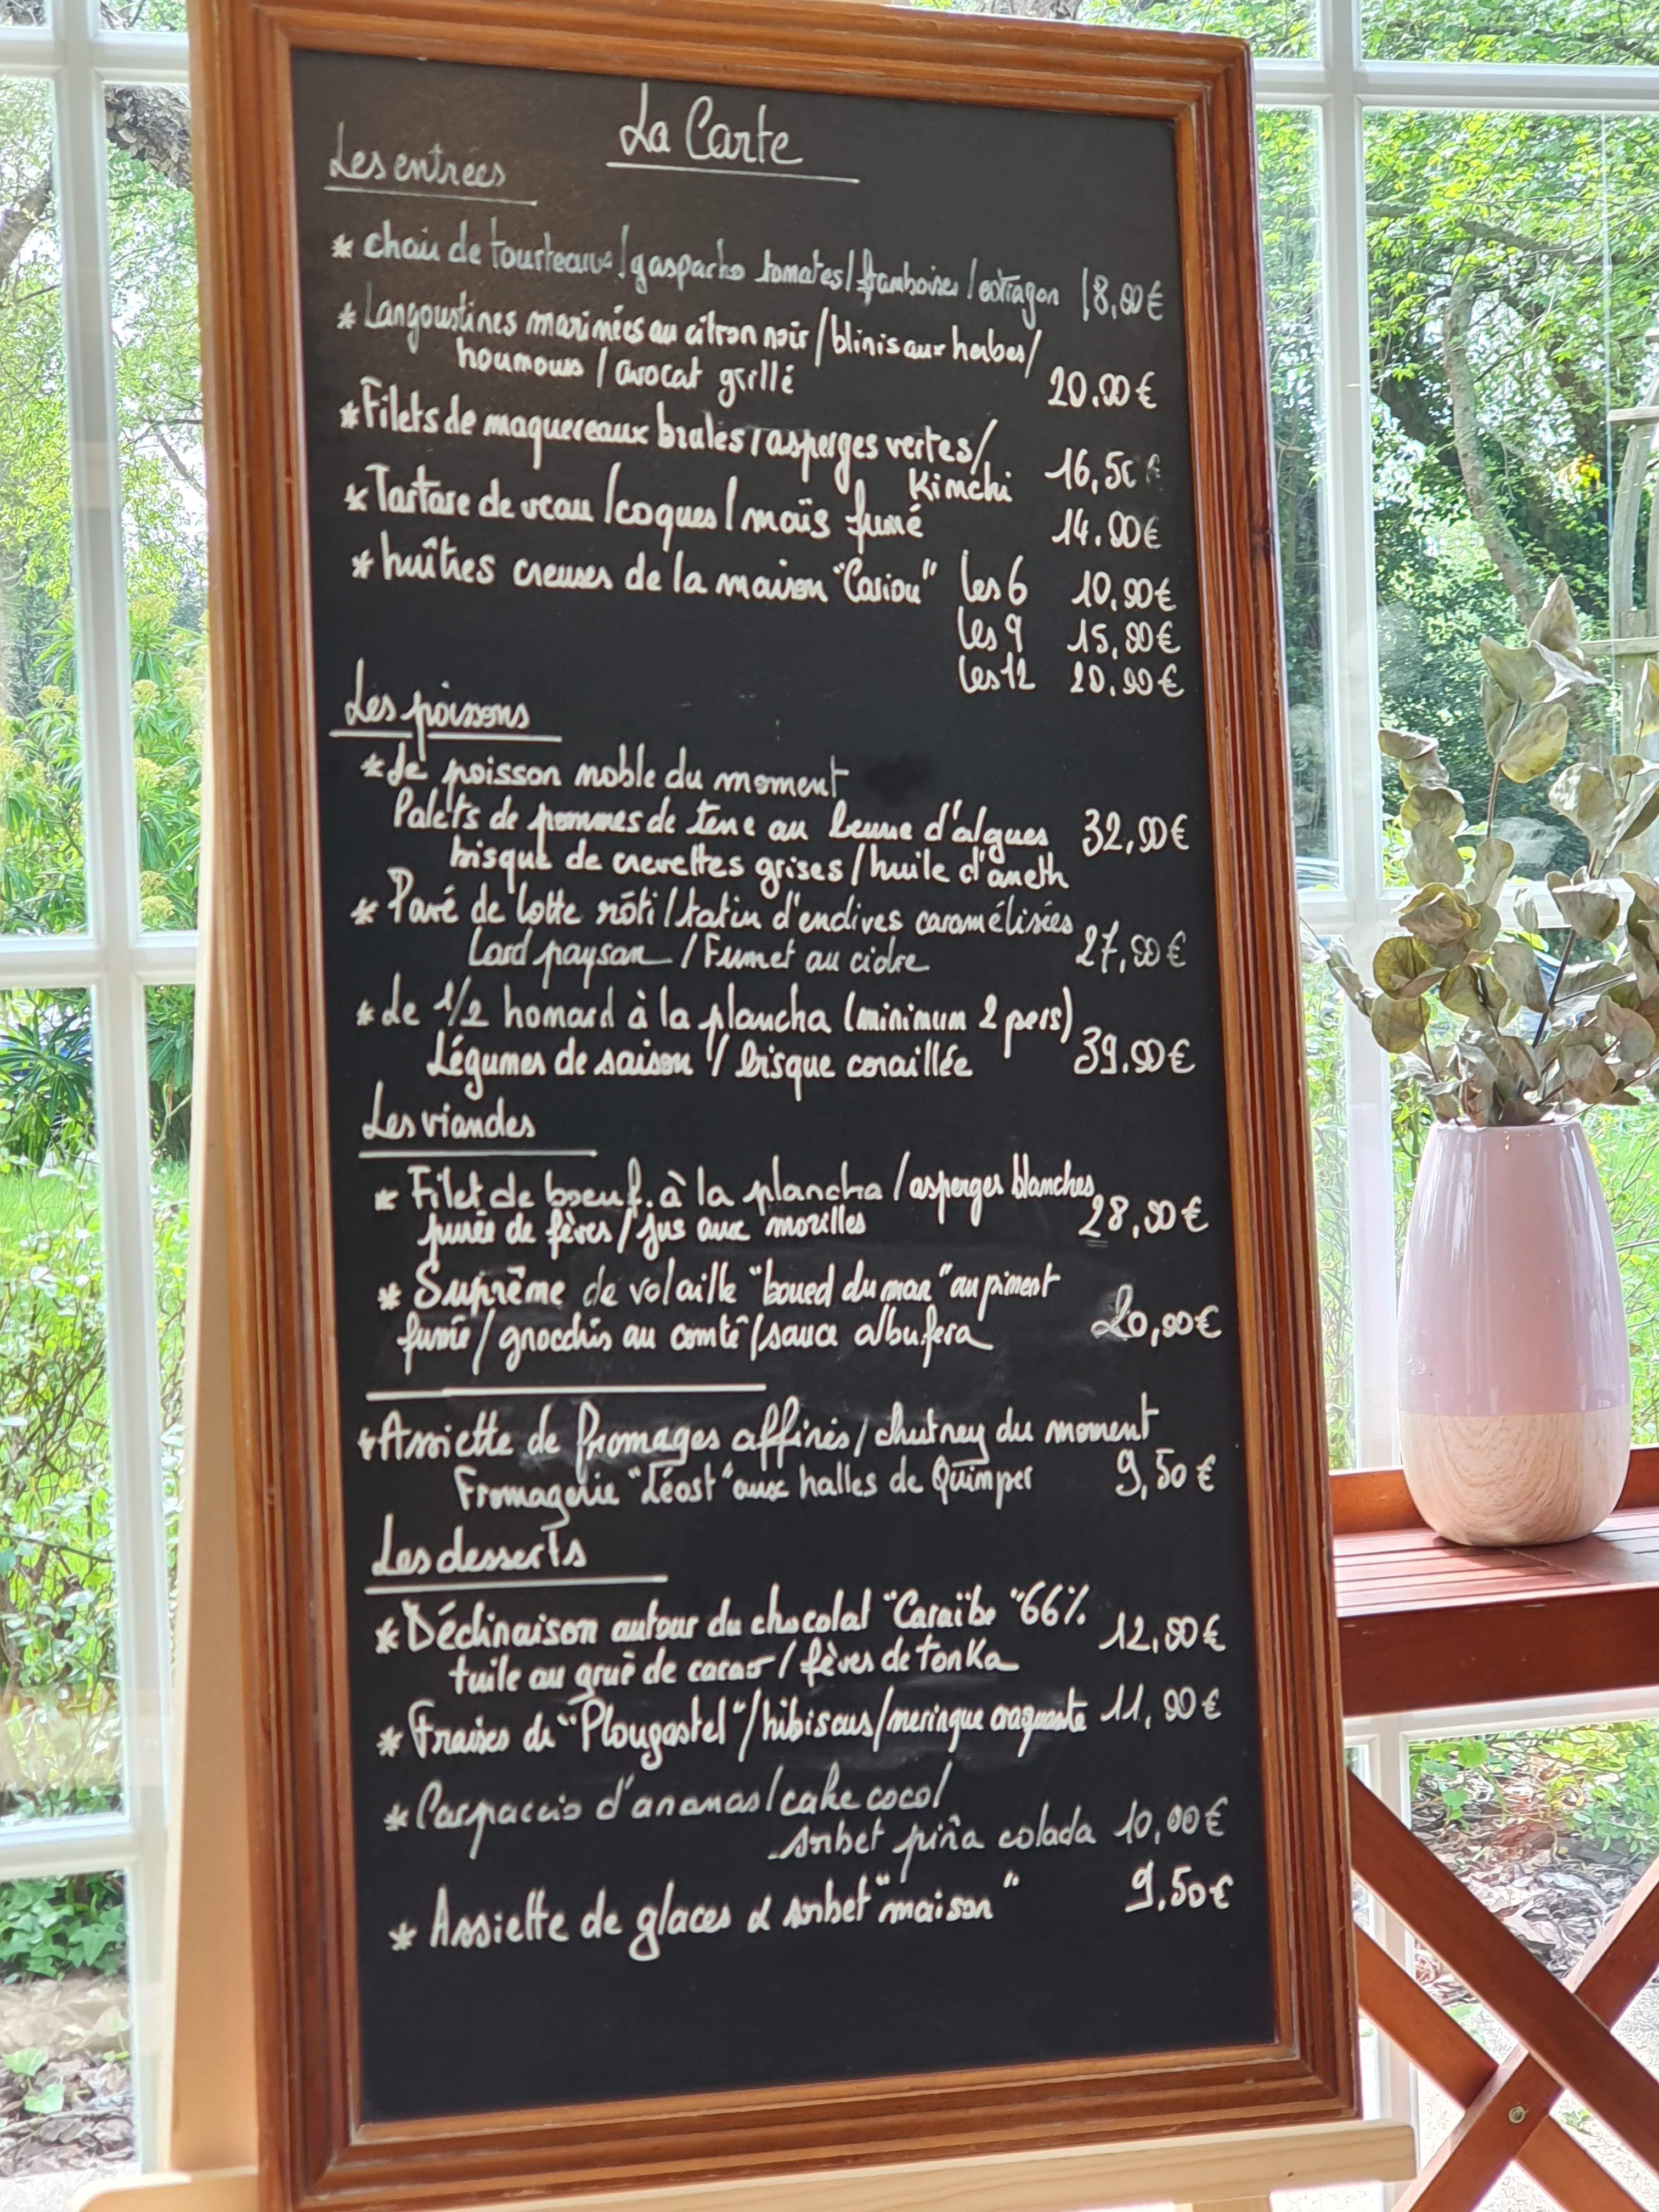 La Carte
Les entrées
* chair de tourteaux / gaspacho tomates / framboises / estragon 18,00 €
* Langoustines marinées au citron noir / blinis aux herbes /
houmous / avocat grillé 20.00 €
* Filets de maquereaux brulés / asperges vertes /
Kimchi 16,50 €
* Tartare de veau / coques / maïs fumé 14.00 €
* huîtres creuses de la maison "Cariou" les 6 10,00 €
les 9 15,00 €
les 12 20,00 €
Les poissons
* Le poisson noble du moment
Palets de pommes de terre au beurre d'algues 32,00 €
bisque de crevettes grises / huile d'aneth
* Pavé de lotte rôti / tatin d'endives caramélisées
Lard paysan / Fumet au cidre 27,00 €
* Le 1/2 homard à la plancha (minimum 2 pers)
Légumes de saison / bisque coraillée 39.00 €
Les viandes
* Filet de boeuf à la plancha / asperges blanches
purée de fèves / jus aux morilles 28,00 €
* Suprême de volaille "boued du mar" au piment
fumé / gnocchis au comté / sauce albufera 20,00 €
* Assiette de fromages affinés / chutney du moment
Fromagerie "Léost" aux halles de Quimper 9,50 €
Les desserts
* Déclinaison autour du chocolat "Caraïbe" 66% 12,00 €
tuile au grué de cacao / fèves de tonKa
* Fraises de "Plougastel" / hibiscus / meringue craquante 11,00 €
* Carpaccio d'ananas / cake coco /
sorbet piña colada 10,00 €
* Assiette de glaces & sorbet "maison" 9.50 €